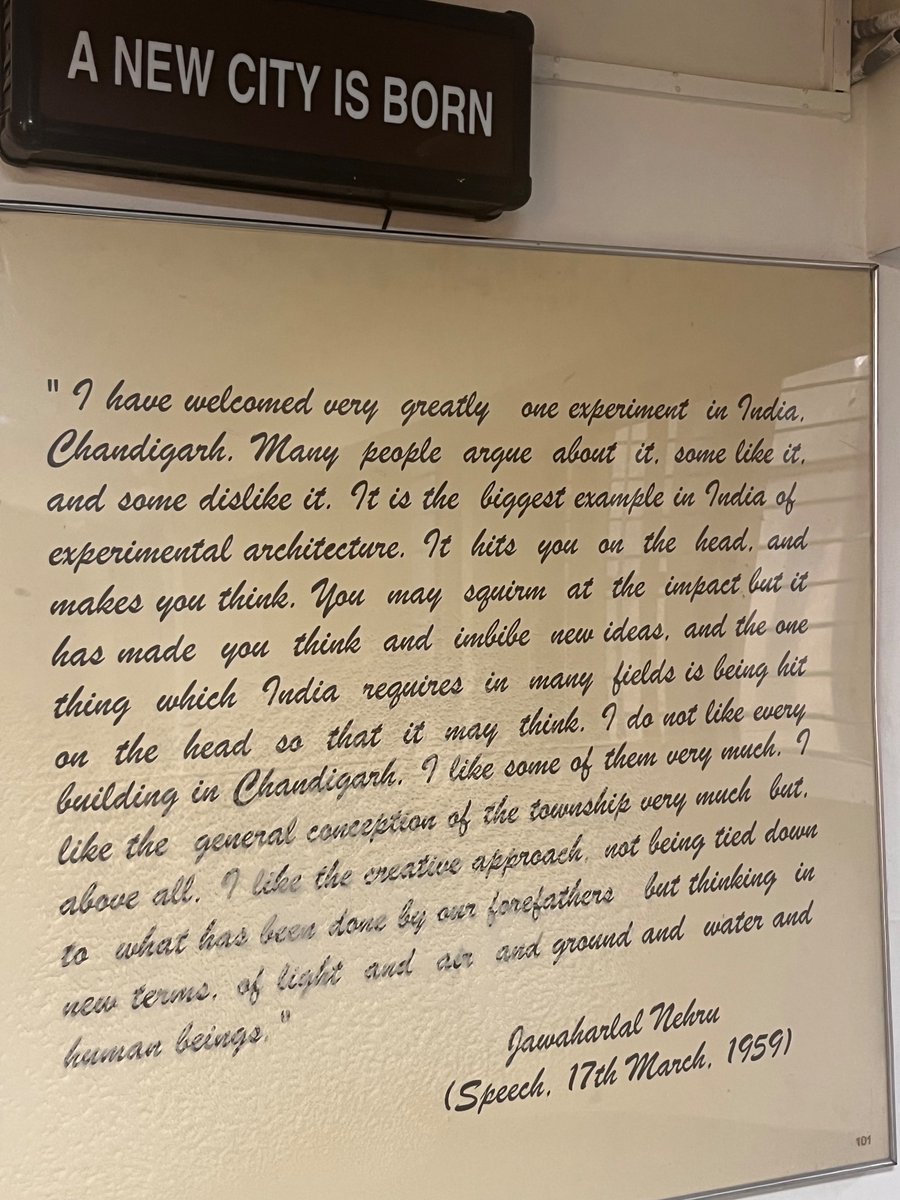 A NEW CITY IS BORN
" I have welcomed very greatly one experiment in India,
Chandigarh. Many people argue about it, some like it,
and some dislike it. It is the biggest example in India of
experimental architecture. It hits you on the head, and
makes you think. You may squirm at the impact but it
has made you think and imbibe new ideas, and the one
thing which India requires in many fields is being hit
on the head so that it may think. I do not like every
building in Chandigarh. I like some of them very much. I
like the general conception of the township very much but,
above all, I like the creative approach, not being tied down
to what has been done by our forefathers but thinking in
new terms, of light and air and ground and water and
human beings."
Jawaharlal Nehru
(Speech, 17th March, 1959)
101